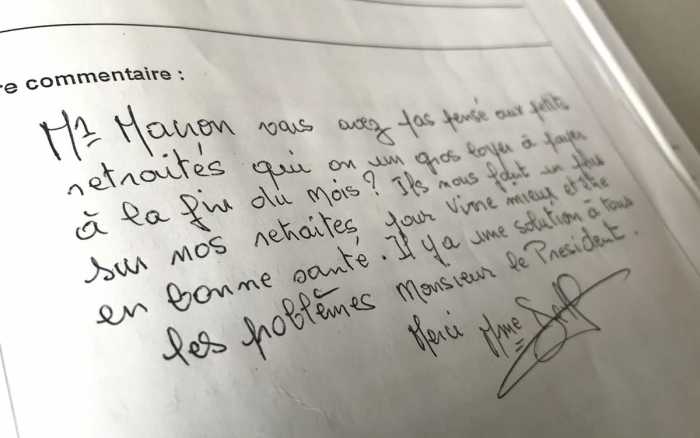 re commentaire :
Mr Macron vous avez pas pensé aux petits
retraités qui on un gros loyer à payer
à la fin du mois? Ils nous faut un plus
sur nos retraites pour vivre mieux et être
en bonne santé. Il y a une solution à tous
les problèmes Monsieur le President.
Merci Mme